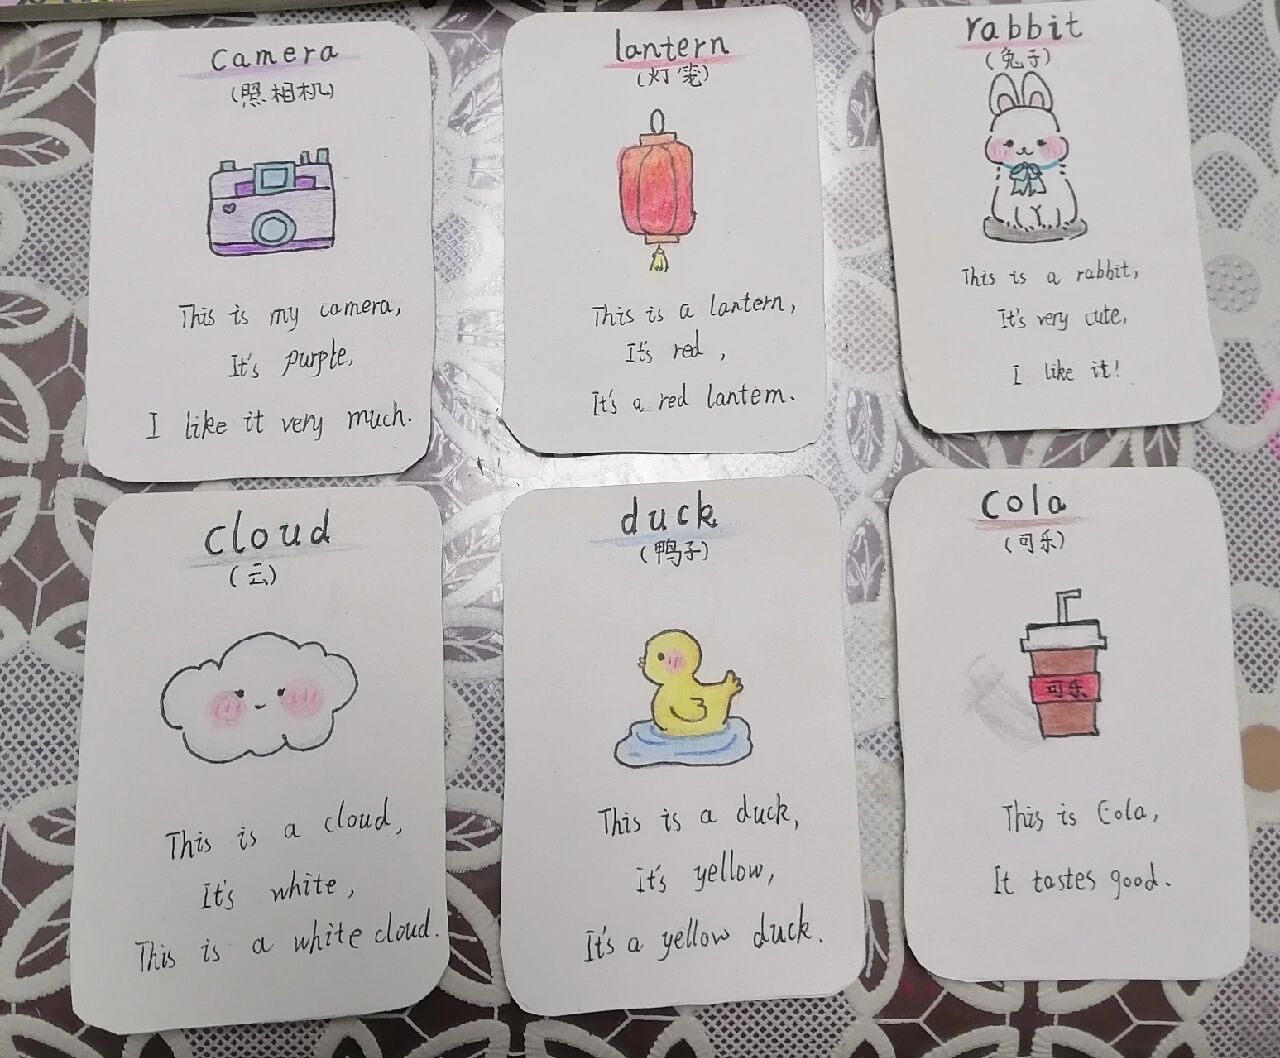 camera
(照相机)
This is my camera,
It's purple,
I like it very much.
lantern
(灯笼)
This is a lantern,
It's red,
It's a red lantern.
rabbit
(兔子)
This is a rabbit,
It's very cute,
I like it!
cloud
(云)
This is a cloud,
It's white,
This is a white cloud.
duck
(鸭子)
This is a duck,
It's yellow,
It's a yellow duck.
cola
(可乐)
可乐
This is Cola,
It tastes good.